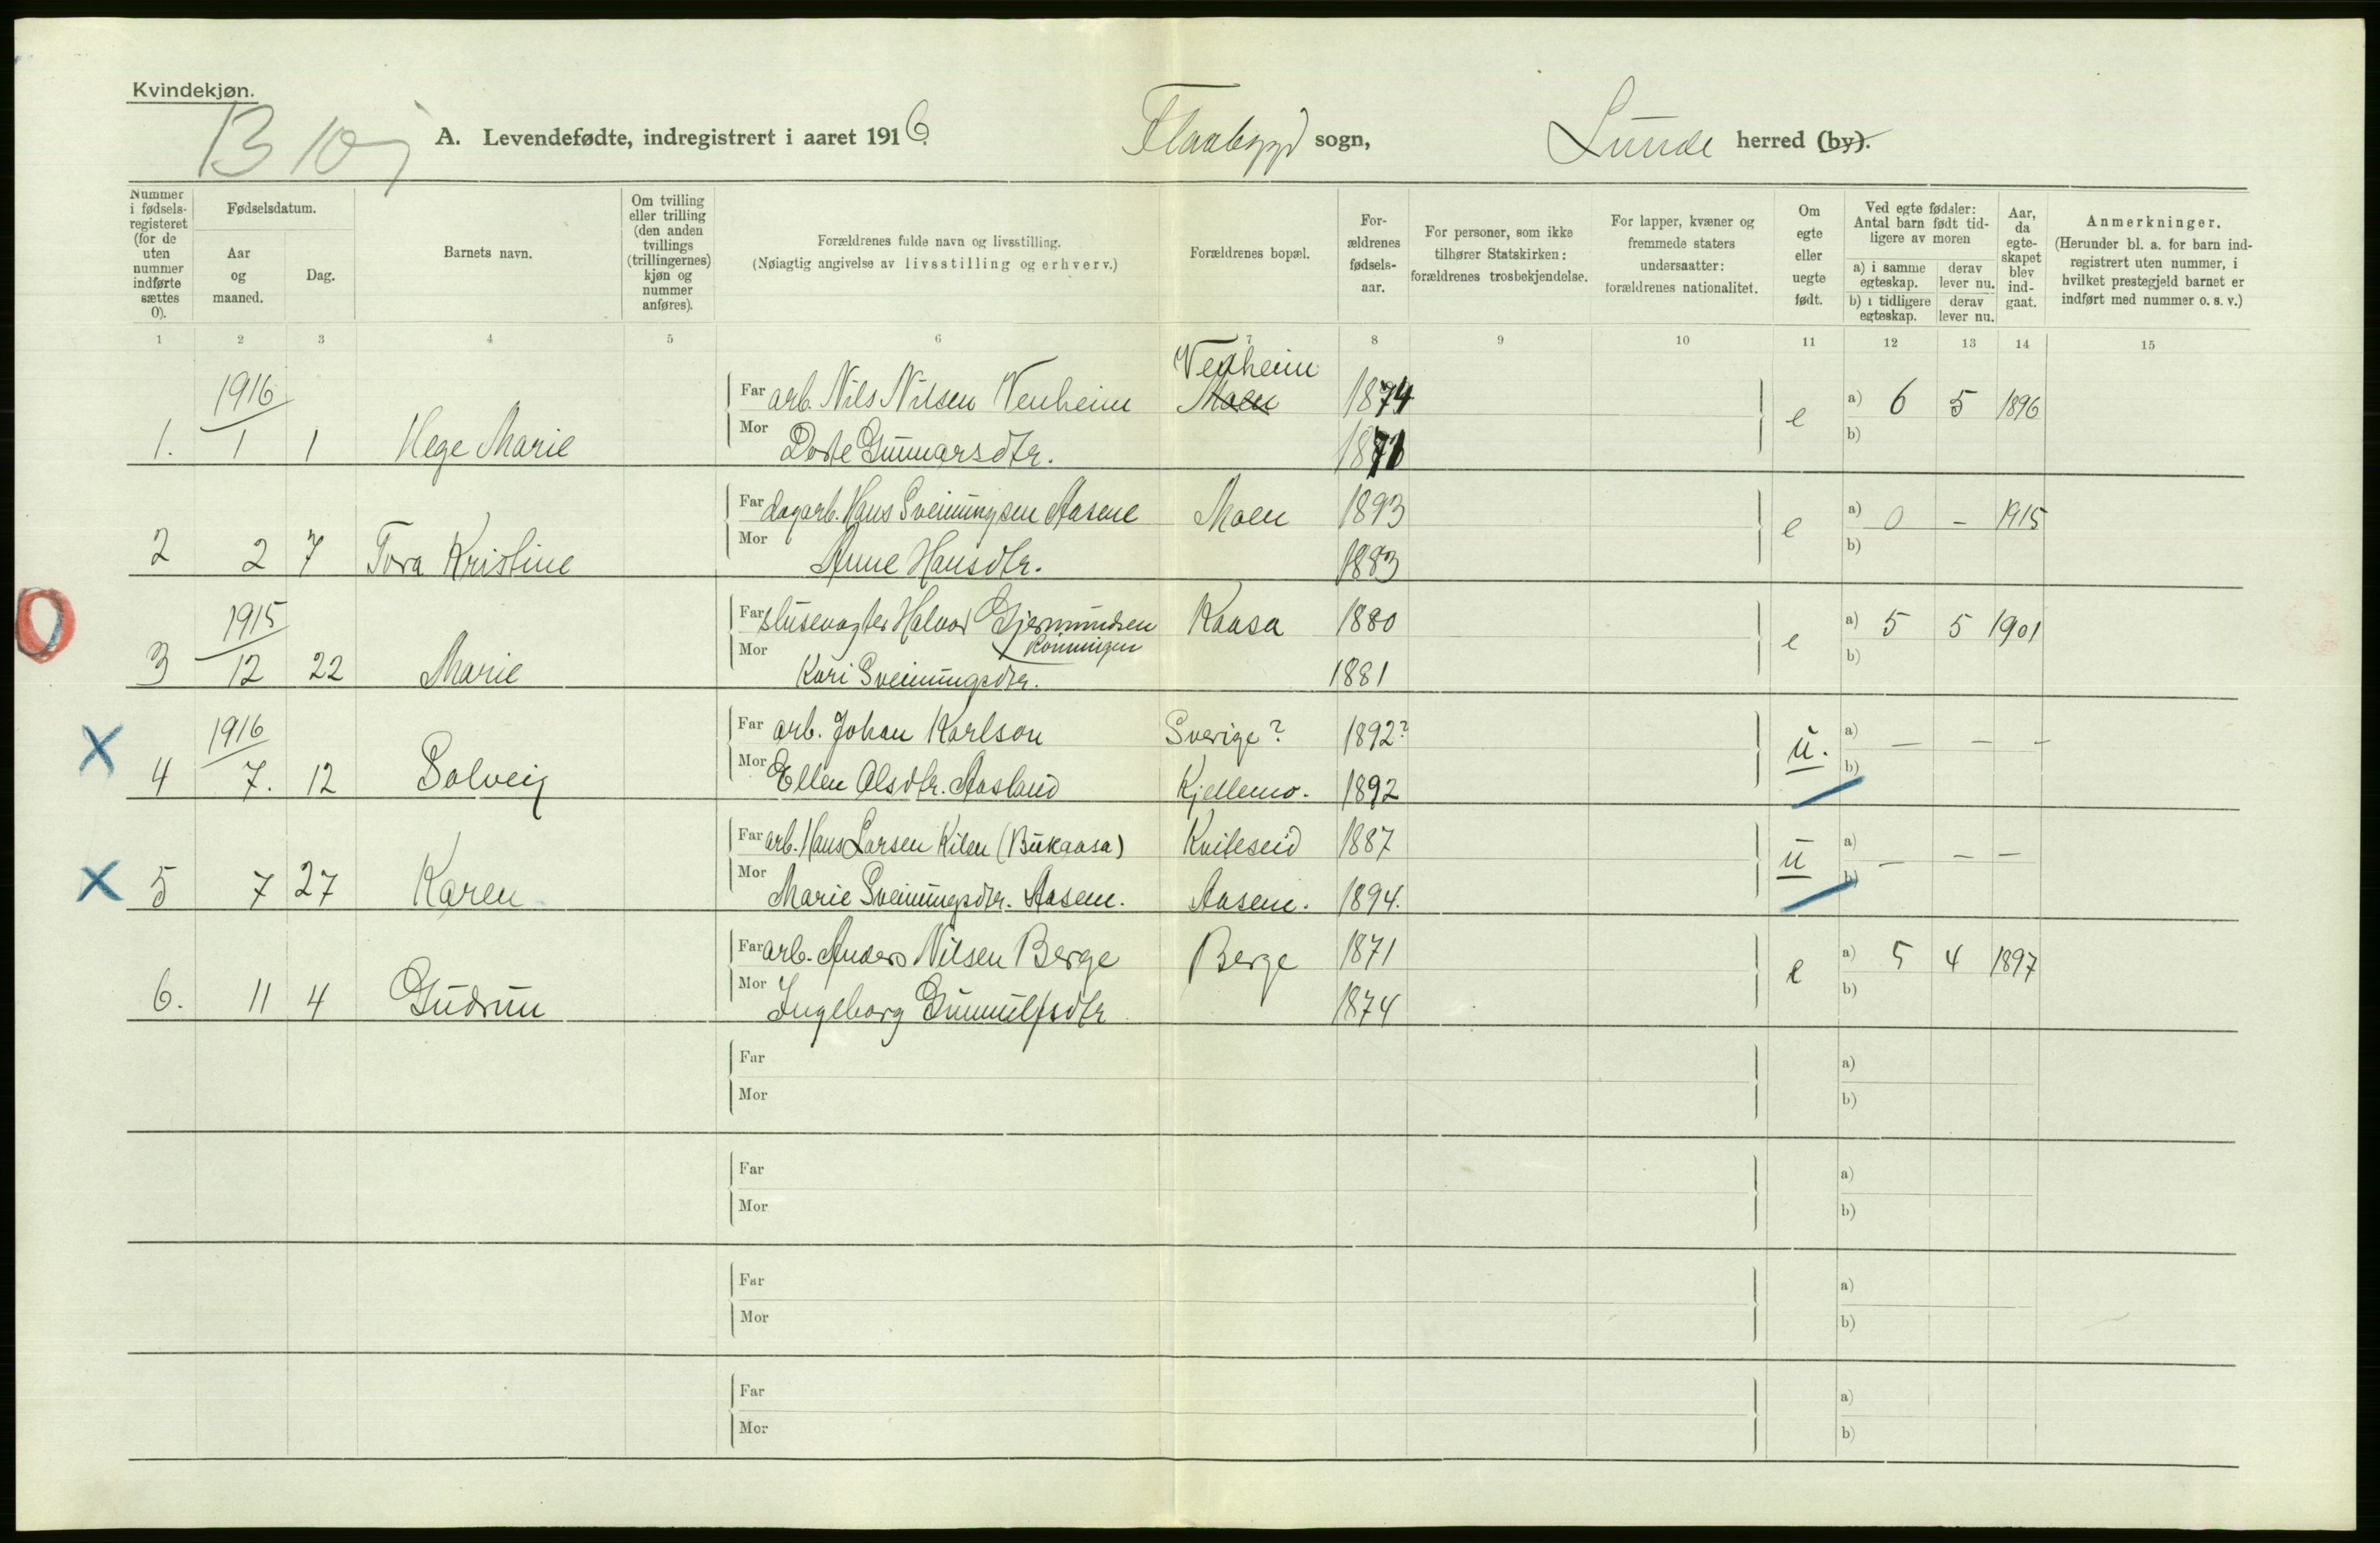 Kvindekjøn.
B 10
A. Levendefødte, indregistrert i aaret 1916. Flaabygd sogn, Lunde herred (by).
Nummer i fødselsregisteret (for de uten nummer indførte sættes 0).
Fødselsdatum.
Aar og maaned.
Dag.
Barnets navn.
Om tvilling eller trilling (den anden tvillings (trillingernes) kjøn og nummer anføres).
Forældrenes fulde navn og livsstilling.
(Nøiagtig angivelse av livsstilling og erhverv.)
Forældrenes bopæl.
Forældrenes fødselsaar.
For personer, som ikke tilhører Statskirken: forældrenes trosbekjendelse.
For lapper, kvæner og fremmede staters undersaatter: forældrenes nationalitet.
Om egte eller uegte født.
Ved egte fødsler: Antal barn født tidligere av moren
a) i samme egteskap. derav lever nu.
b) i tidligere egteskap. derav lever nu.
Aar, da egteskapet blev indgaat.
Anmerkninger.
(Herunder bl. a. for barn indregistrert uten nummer, i hvilket prestegjeld barnet er indført med nummer o. s. v.)
1 2 3 4 5 6 7 8 9 10 11 12 13 14 15
1916 Far arb. Nils Nilsen Venheim Venheim Moen 1874 e a) 6 5 1896
1. 1 1 Hege Marie Mor Dorte Gunnarsdtr. 1871 b)
Far dagarb. Hans Sveinungsen Aasene Moen 1893 e a) 0 – 1915
2 2 7 Tora Kristine Mor Anne Hansdtr. 1883 b)
1915 Far slusevogter Halvor Gjermundsen Ronningen Kaasa 1880 e a) 5 5 1901
3 12 22 Marie Mor Kari Sveinungsdtr. 1881 b)
1916 Far arb. Johan Karlson Sverige? 1892? u. a) – – –
4 7. 12 Solveig Mor Ellen Olsdtr. Aasland Kjellemo. 1892 b)
Far arb. Hans Larsen Kilen (Bukaasa) Kviteseid 1887 u a) – – –
5 7 27 Karen Mor Marie Sveinungsdtr. Aasene. Aasene. 1894. b)
Far arb. Anders Nilsen Berge Berge 1871 e a) 5 4 1897
6. 11 4 Gudrun Mor Ingeborg Gunnulfsdtr 1874 b)
Far a)
Mor b)
Far a)
Mor b)
Far a)
Mor b)
Far a)
Mor b)